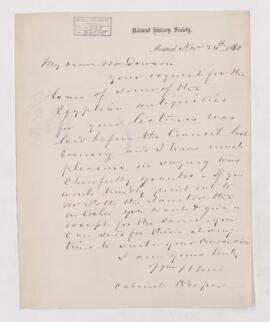 Natural History Society.
Montreal Nov 24th 1880
My dear Mr Dawson
your request for the
loan of some of the
Egyptian antiquities
for your lectures was
laid before the Council last
evening and I have much
pleasure in saying was
cheerfully granted. If you
would kindly point out to
Mr Potts the Janitor the
articles you want & give a
receipt for the same you
can send for them at any
time to suit your convenience
I am yours truly,
Cabinet Keeper